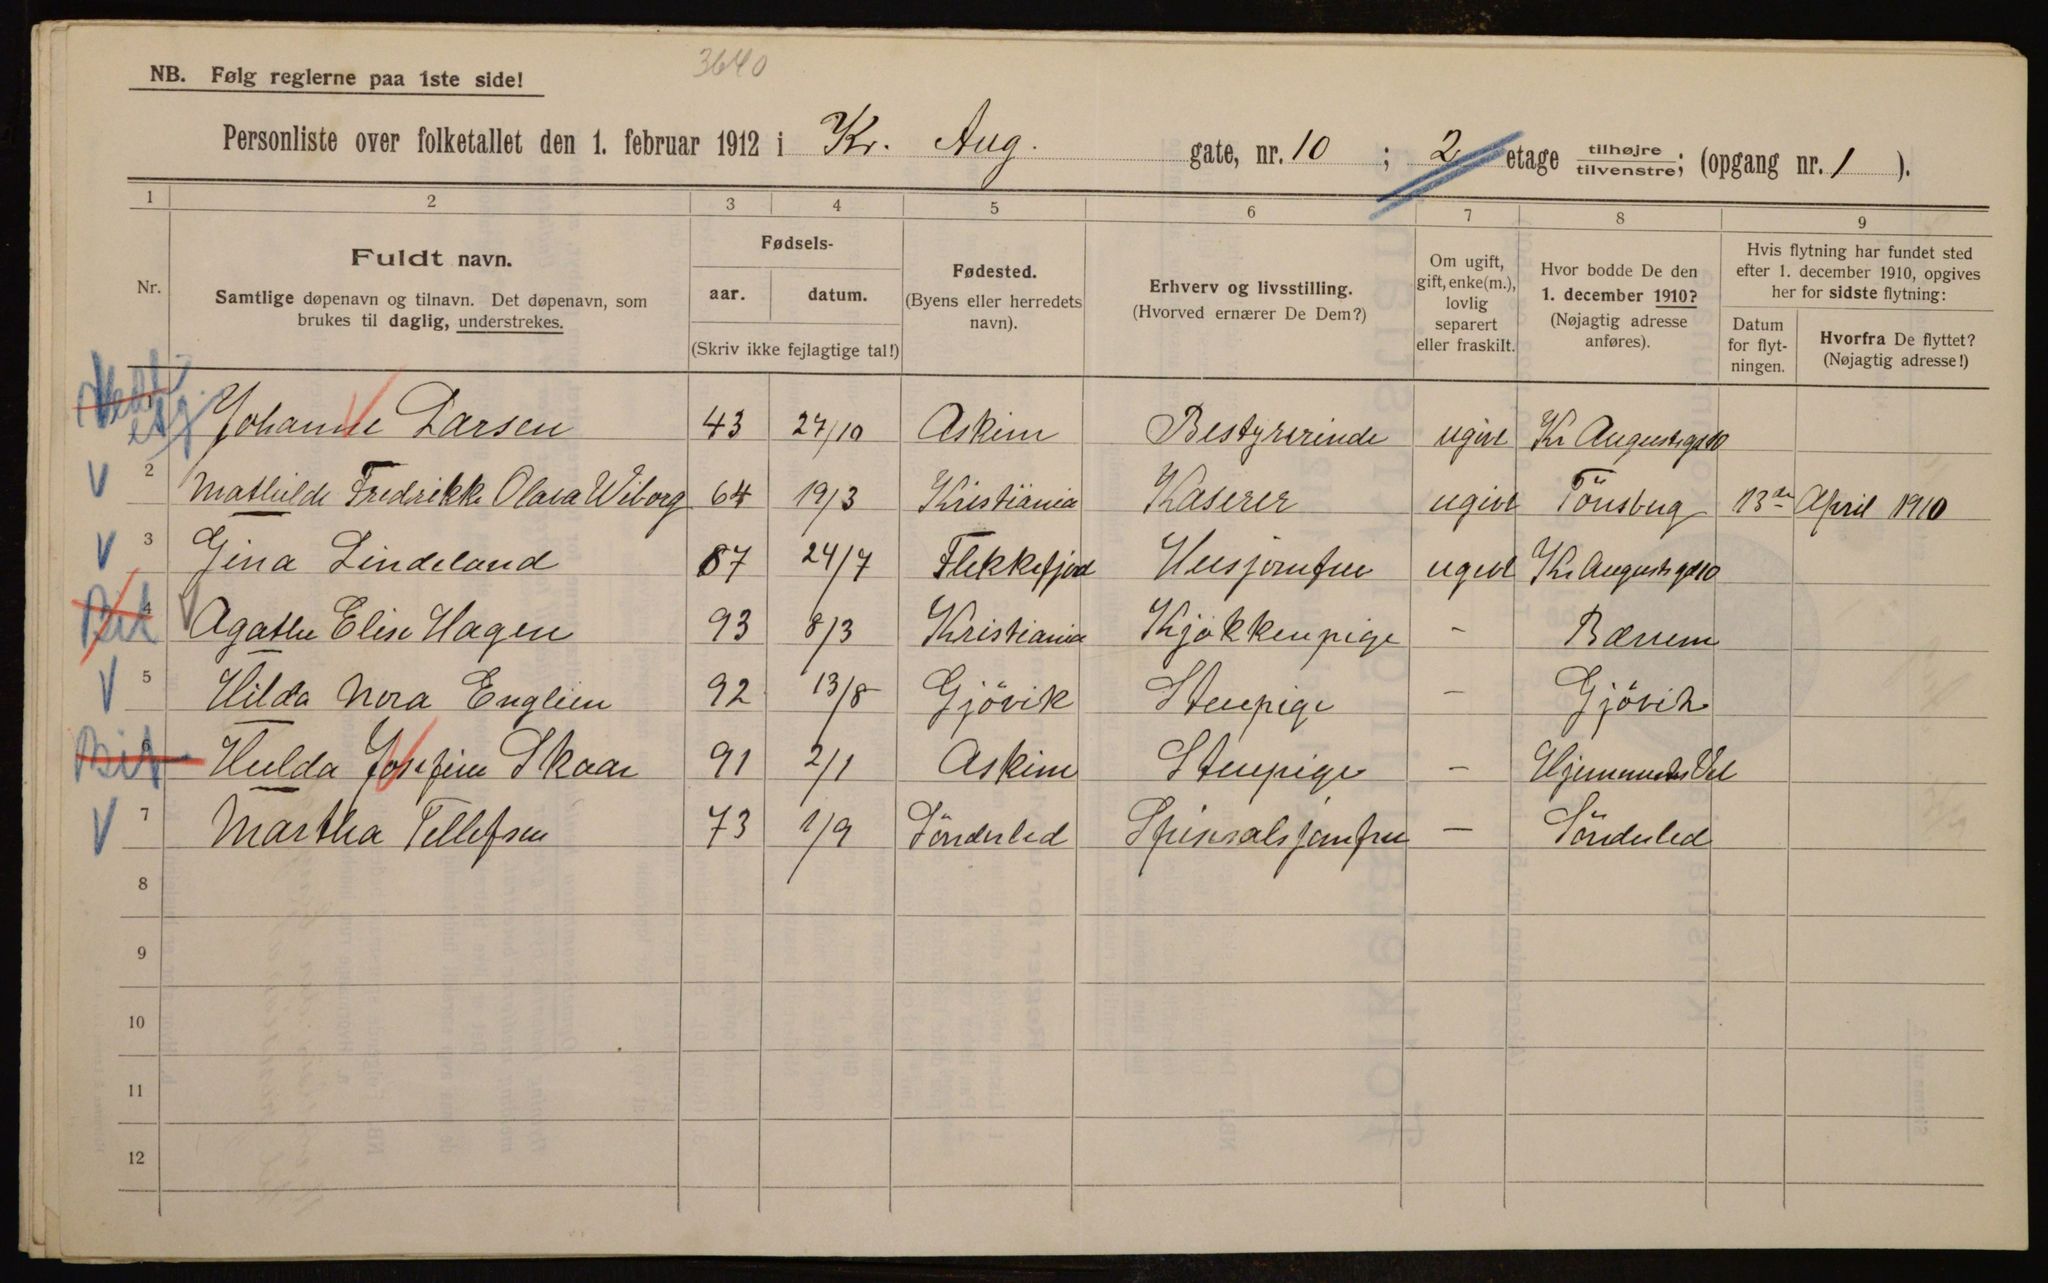 3640
NB. Følg reglerne paa 1ste side!
Personliste over folketallet den 1. februar 1912 i Kr. Aug. gate, nr. 10 ; 2 etage tilhøjre/tilvenstre; (opgang nr. 1 ).
1 2 3 4 5 6 7 8 9
Nr.
Fuldt navn.
Samtlige døpenavn og tilnavn. Det døpenavn, som
brukes til daglig, understrekes.
Fødsels-
aar. datum.
(Skriv ikke fejlagtige tal!)
Fødested.
(Byens eller herredets
navn).
Erhverv og livsstilling.
(Hvorved ernærer De Dem?)
Om ugift,
gift, enke(m.),
lovlig
separert
eller fraskilt.
Hvor bodde De den
1. december 1910?
(Nøjagtig adresse
anføres).
Hvis flytning har fundet sted
efter 1. december 1910, opgives
her for sidste flytning:
Datum
for flyt-
ningen.
Hvorfra De flyttet?
(Nøjagtig adresse!)
Johanne Larsen 43 27/10 Askim Bestyrerinde ugivt Kr Augustsgt 10
V 2 Mathilde Fredrikke Olava Wiborg 64 19/3 Kristiania Kaserer ugivt Tönsberg 13de April 1910
V 3 Gina Lindeland 87 24/7 Flekkefjord Husjomfru ugivt Kr Augustsgt 10
4 V Agathe Elise Hagen 93 8/3 Kristiania Kjøkkenpige - Bærum
V 5 Hilda Nora Englien 92 13/8 Gjövik Stuepige - Gjövik
6 Hulda Josefine Skaar 91 2/1 Askim Stuepige - Hjemmets Vel
V 7 Martha Tellefsen 73 1/9 Sönderled Spisesalsjomfru - Sönderled
8
9
10
11
12